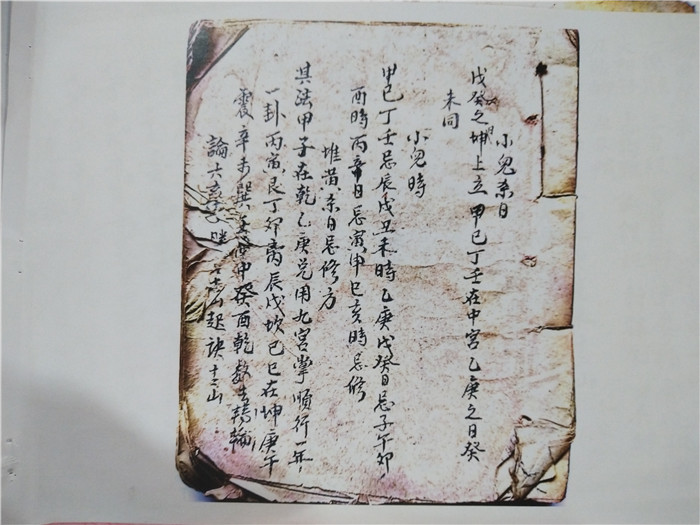 小皃杀日
戊癸之坤上立 甲已丁壬在中宮 乙庚之日癸
未同
小皃時
甲已丁壬忌辰戌丑未時 乙庚戊癸日忌子午卯
酉時 丙辛日忌寅申巳亥時忌修
堆黄杀日忌修方
其法甲子在乾 乙庚兑 用九宮掌順行一年
一卦 丙寅艮 丁卯离 辰戊坎 已巳在坤 庚午
震 辛未巽 申癸酉乾 数去轉輪
論六 起訣十二山